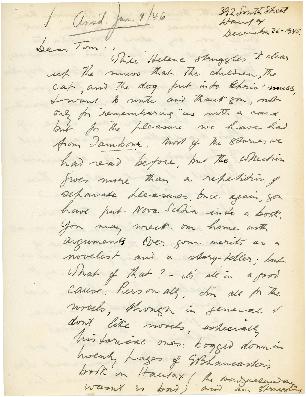 Ans'd Jan. 9/46
392 South Street
Halifax
December 26-1945.
Dear Tom:
While Helene struggles to clear
up the mess that the children, the
cat, and the dog put into
I want to write and thank you, not
only for remembering us with a
but for the pleasure we have had
from Tambour. Most of the stories, we
had read before, but the collection
gives more than a repetition of
separate pleasures. Once again, you
have put Nova Scotia into a book.
You may wreck our home with
arguments over your merits as a
novelist and a story-teller; but
what of that? - it's all in a good
cause. Personally, I'm all for the
novels, though in general I
don't like novels, especially
historical ones. Bogged down in
twenty pages of
book on Halifax (
wasn't so bad) and am